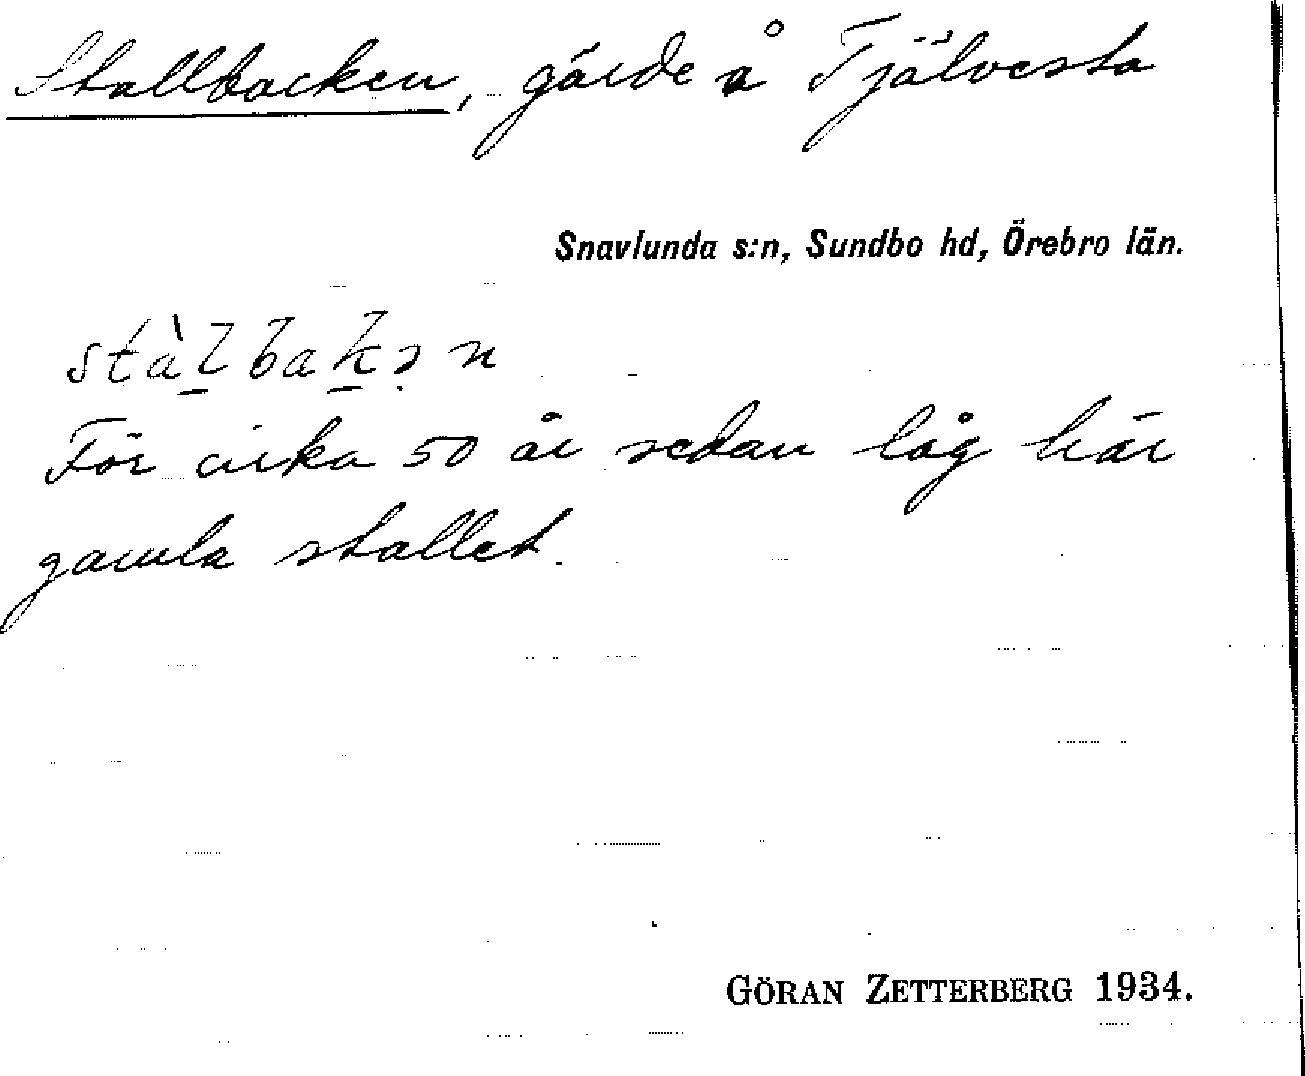 Stallbacken, gärde å Tjälvesta
Snavlunda s:n, Sundbo hd, Örebro län.
stàl̠bak̠ən
För cirka 50 år sedan låg här
gamla stallet.
GÖRAN ZETTERBERG 1934.